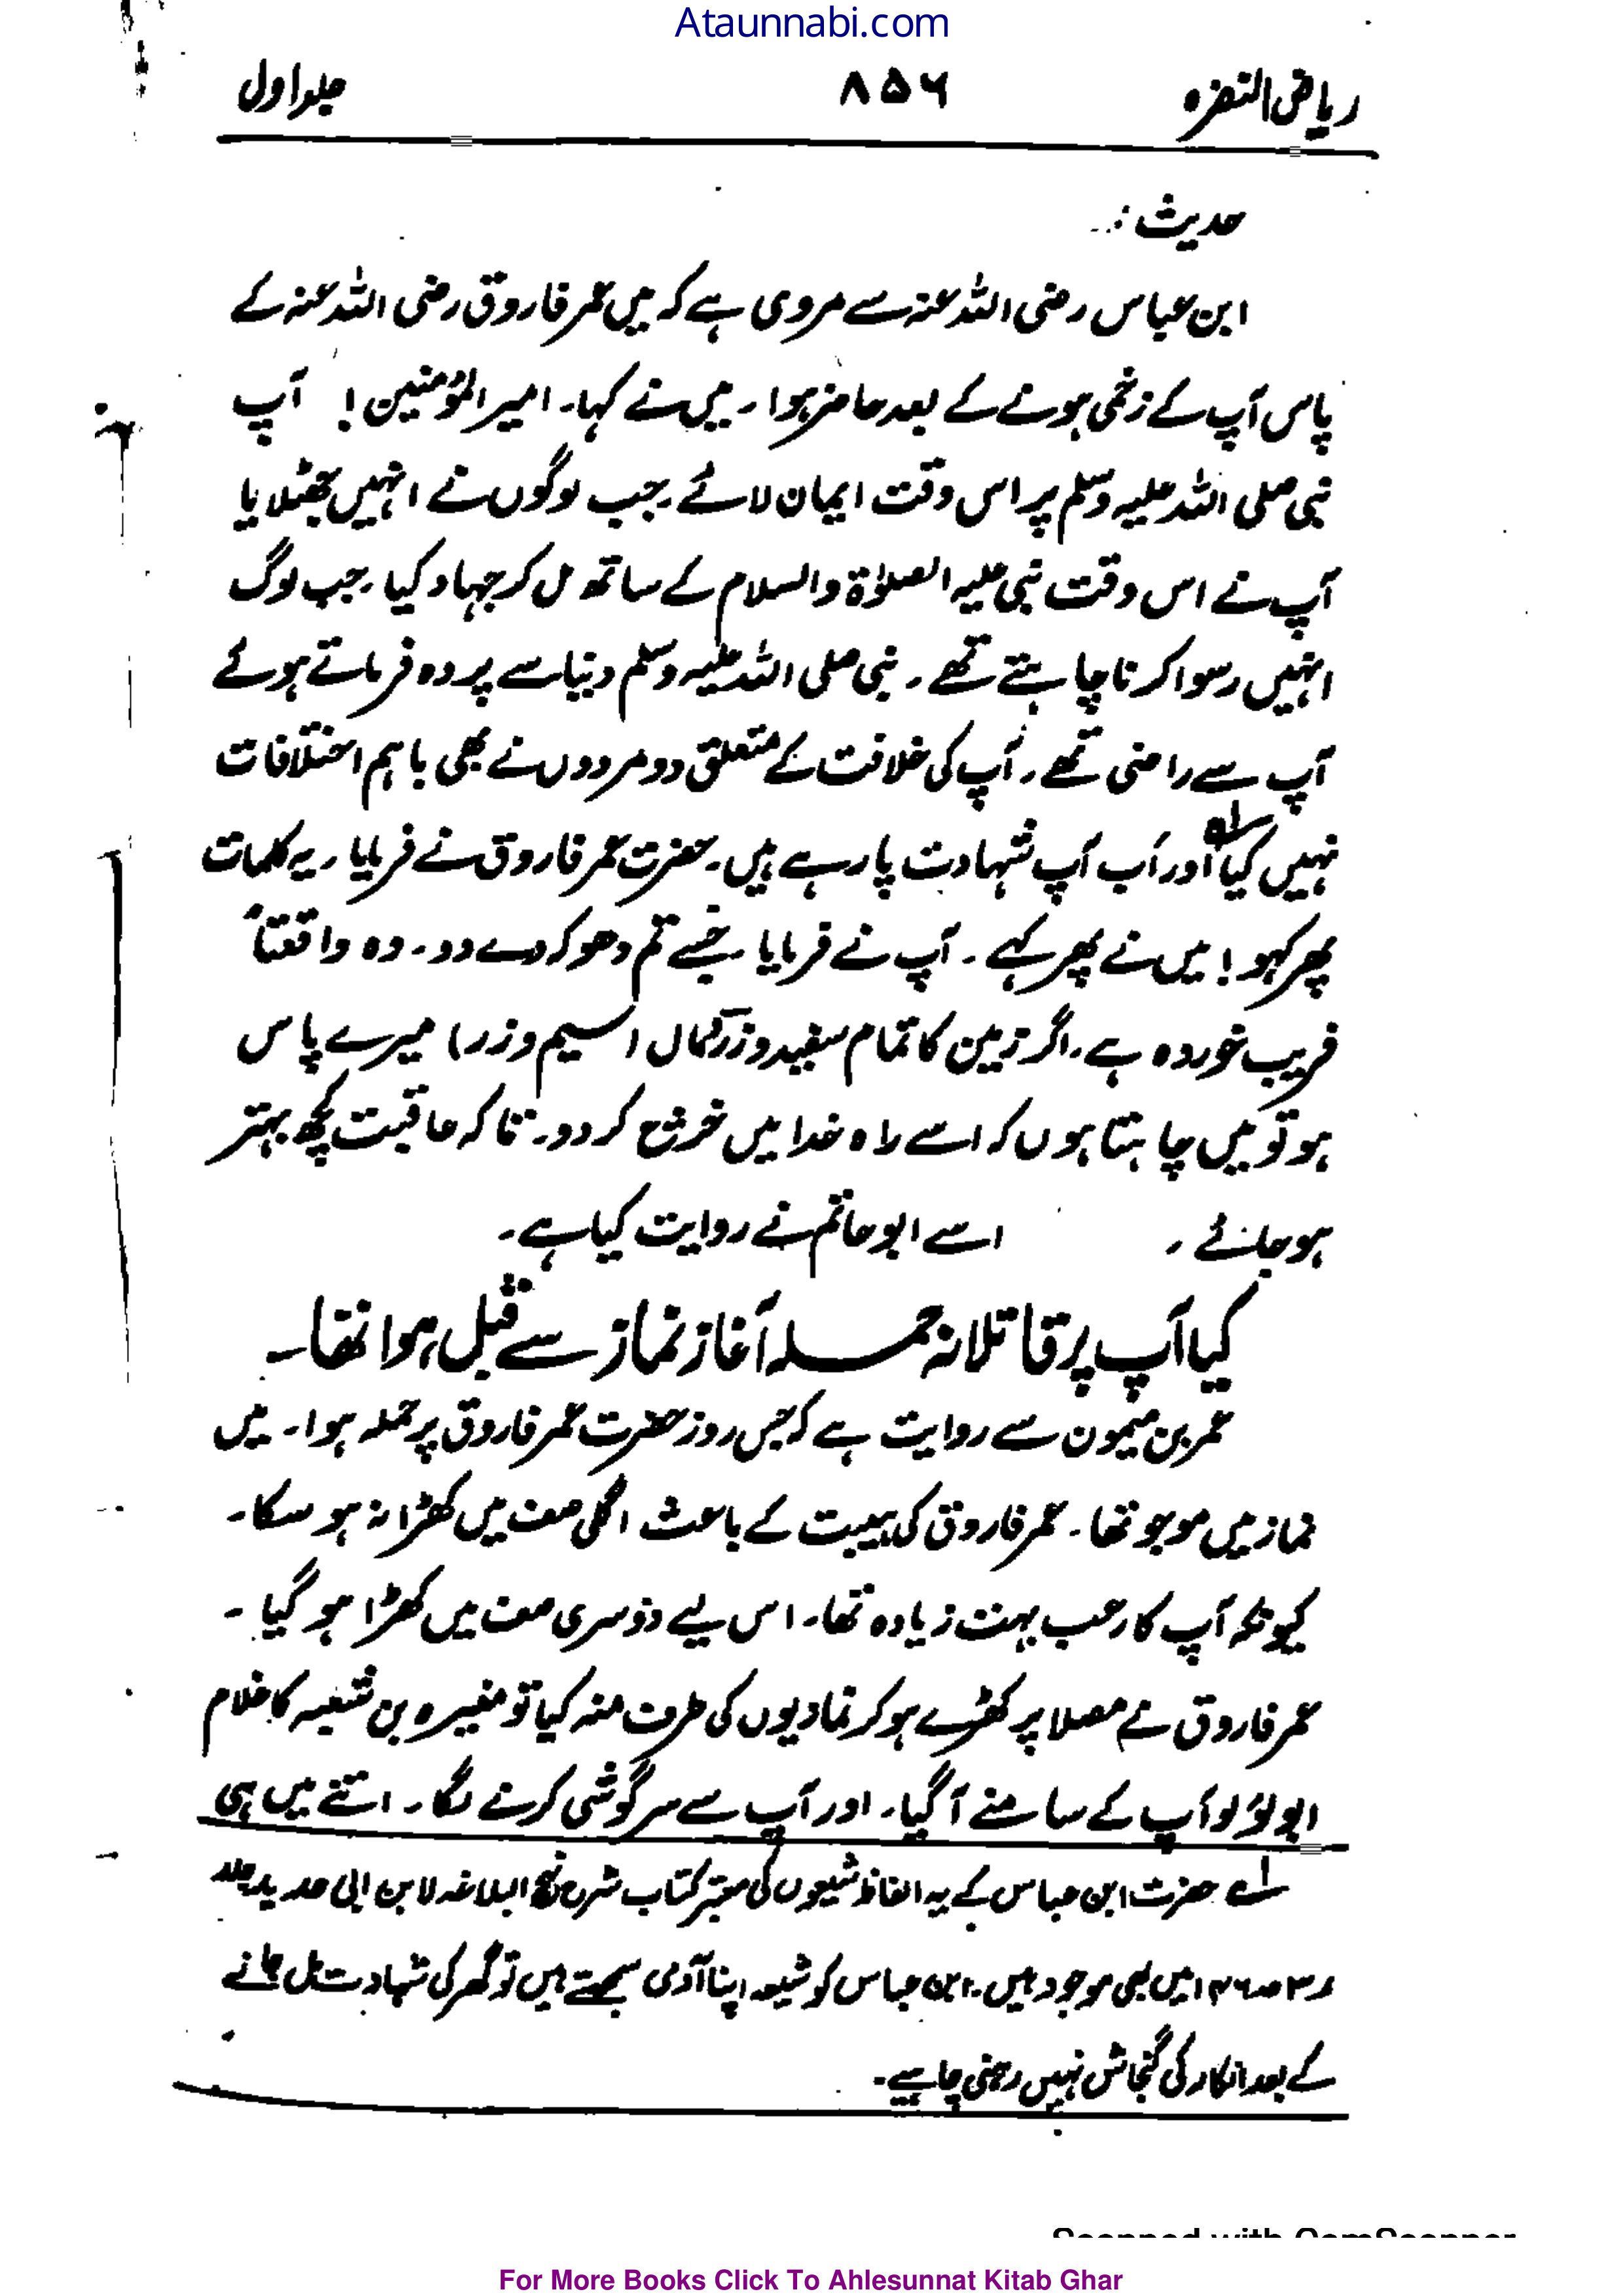 Ataunnabi.com
ریاض النضرہ ۸۵۶ جلد اول
حدیث :۔
ابن عباس رضی اللہ عنہ سے مروی ہے کہ میں عمر فاروق رضی اللہ عنہ کے
پاس آپ کے زخمی ہونے کے بعد حاضر ہوا ۔ میں نے کہا۔ امیر المؤمنین ! آپ
نبی صلی اللہ علیہ وسلم پر اس وقت ایمان لائے ۔ جب لوگوں نے انہیں جھٹلایا
آپ نے اس وقت نبی علیہ الصلوٰۃ والسلام کے ساتھ مل کر جہاد کیا ۔ جب لوگ
انہیں رسوا کرنا چاہتے تھے ۔ نبی صلی اللہ علیہ وسلم دنیا سے پردہ فرماتے ہوئے
آپ سے راضی تھے ۔ آپ کی خلافت کے متعلق دو مردوں نے بھی باہم اختلافات
نہیں کیا ۱ے اور اب آپ شہادت پا رہے ہیں ۔ حضرت عمر فاروق نے فرمایا ۔ یہ کلمات
پھر کہو ! میں نے پھر کہے ۔ آپ نے فرمایا ۔ جسے تم دھوکہ دے دو ۔ وہ واقعتاً
فریب خوردہ ہے ۔ اگر زمین کا تمام سفید و زرد مال (سیم و زر) میرے پاس
ہو تو میں چاہتا ہوں کہ اسے راہ خدا میں خرچ کر دو ۔ تاکہ عاقبت کچھ بہتر
ہو جائے ۔ اسے ابو حاتم نے روایت کیا ہے ۔
کیا آپ پر قاتلانہ حملہ آغاز نماز سے قبل ہوا تھا ۔
عمر بن میمون سے روایت ہے کہ جس روز حضرت عمر فاروق پر حملہ ہوا ۔ میں
نماز میں موجو تھا ۔ عمر فاروق کی ہیبت کے باعث اگلی صف میں کھڑا نہ ہو سکا ۔
کیونکہ آپ کا رعب بہت زیادہ تھا ۔ اس لیے دوسری صف میں کھڑا ہو گیا ۔
عمر فاروق نے مصلا پر کھڑے ہو کر نمازیوں کی طرف منہ کیا تو مغیرہ بن شعبہ کا غلام
ابو لؤلو آپ کے سامنے آ گیا ۔ اور آپ سے سرگوشی کرنے لگا ۔ اتنے میں ہی
۱ے حضرت ابن عباس کے یہ الفاظ شیعوں کی معتبر کتاب شرح نہج البلاغہ لابن ابی حدید جلد
۳ ص ۱۴۶ میں بھی موجود ہیں ۔ ابن عباس کو شیعہ اپنا آدمی سمجھتے ہیں تو گھر کی شہادت مل جانے
کے بعد انکار کی گنجائش نہیں رہنی چاہیے ۔
For More Books Click To Ahlesunnat Kitab Ghar